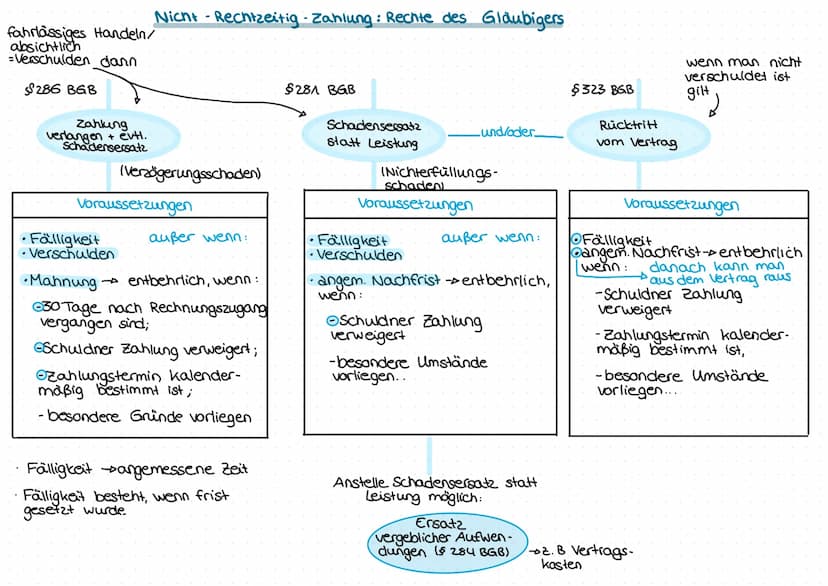 Nicht - Rechtzeitig - Zahlung: Rechte des Gläubigers
fahrlässiges Handeln/
absichtlich
= Verschulden dann
§286 BGB
Zahlung
verlangen + evtl.
Schadensersatz
(Verzögerungsschaden)
Voraussetzungen
· Fälligkeit außer wenn:
· Verschulden
· Mahnung → entbehrlich, wenn:
-30 Tage nach Rechnungszugang
vergangen sind;
-Schuldner Zahlung verweigert;
-Zahlungstermin kalender-
mäßig bestimmt ist;
- besondere Gründe vorliegen
· Fälligkeit → angemessene Zeit
· Fälligkeit besteht, wenn frist
gesetzt wurde
§281 BGB
Schadensersatz
statt Leistung
und/oder
(Nichterfüllungs-
schaden)
Voraussetzungen
· Fälligkeit außer wenn:
· Verschulden
· angem. Nachfrist → entbehrlich,
wenn:
-Schuldner Zahlung
verweigert
-besondere Umstände
vorliegen..
Anstelle Schadensersatz statt
Leistung möglich:
Ersatz
vergeblicher Aufwen-
dungen (§ 284 BGB)
→ z.B Vertrags-
kosten
wenn man nicht
verschuldet ist
gilt
§323 BGB
Rücktritt
vom Vertrag
Voraussetzungen
· Fälligkeit
· angem. Nachfrist → entbehrlich
wenn: danach kann man
aus dem Vertrag raus
-Schuldner Zahlung
verweigert
- Zahlungstermin kalender-
mäßig bestimmt ist,
-besondere Umstände
vorliegen...